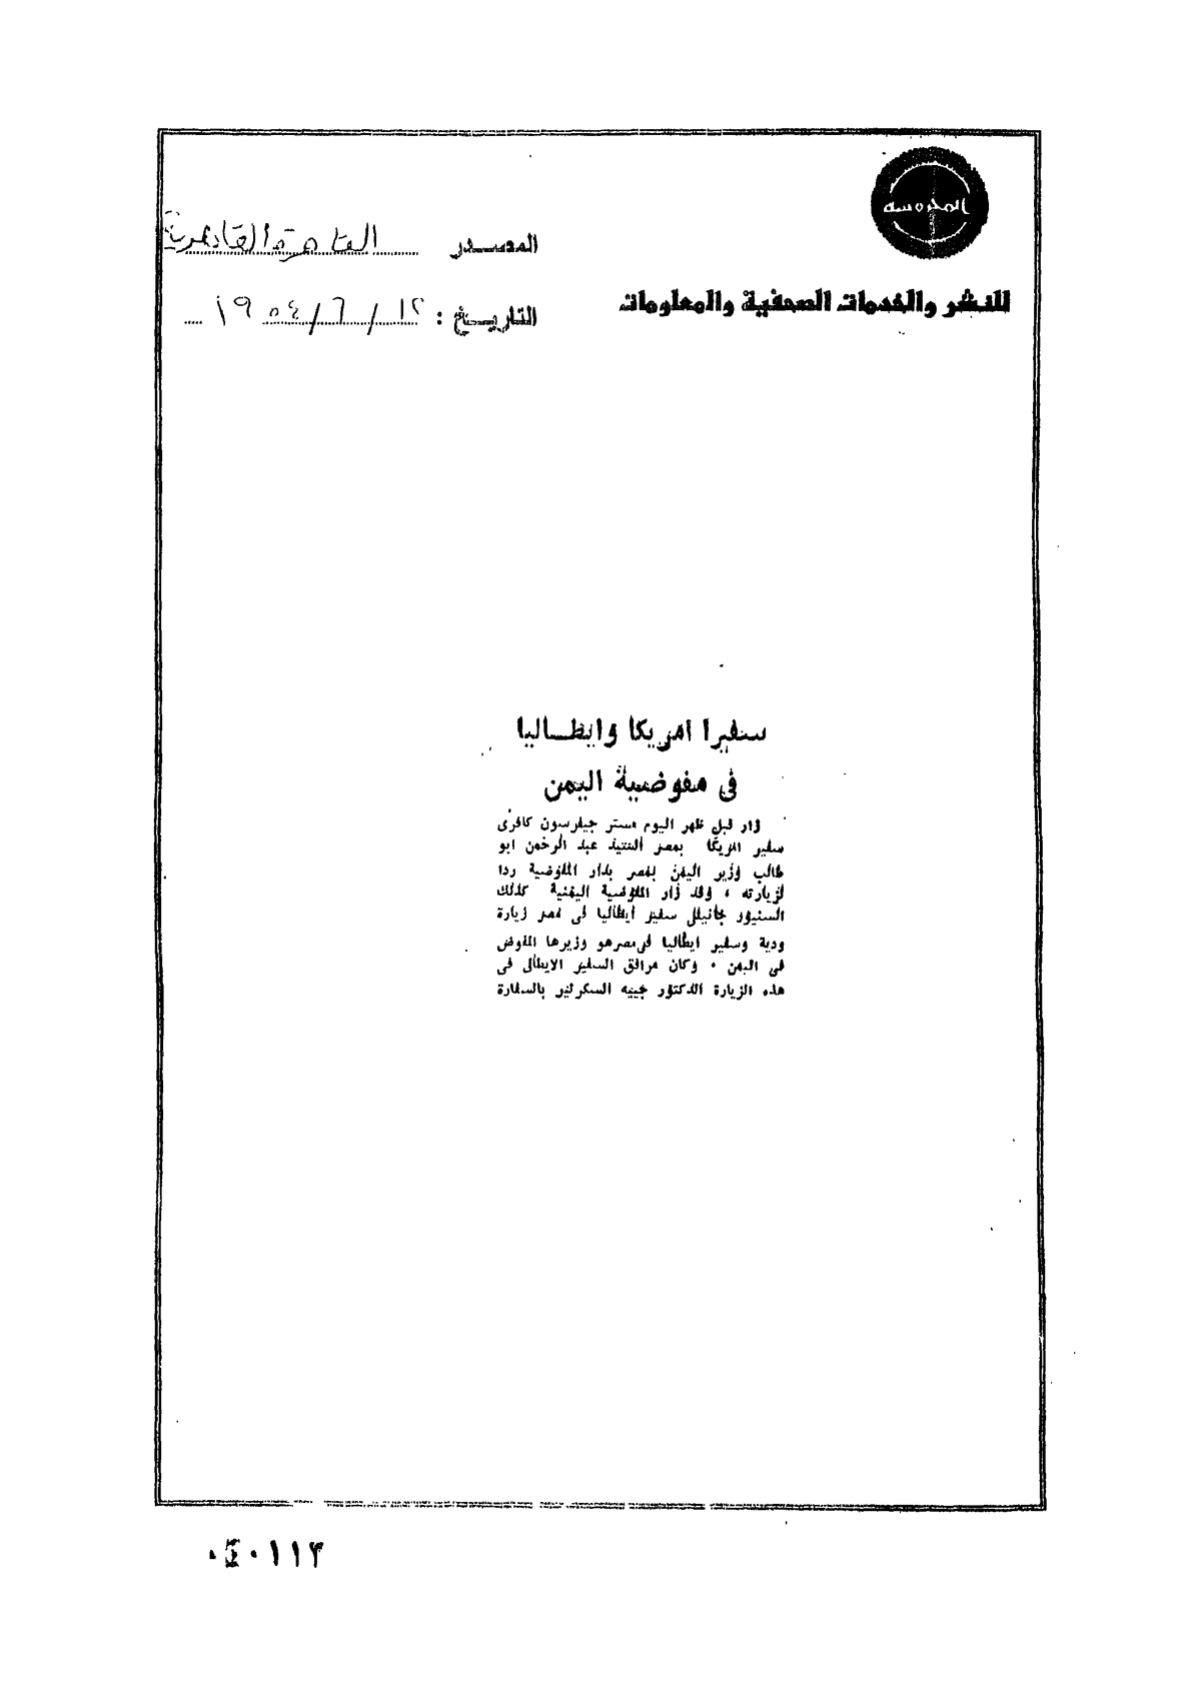 المحروسة
للنشر والخدمات الصحفية والمعلومات
المصدر القاهرة القاهرية
التاريخ : ١٢ / ٦ / ١٩٥٤
سفيرا امريكا وايطاليا
فى مفوضية اليمن
زار قبل ظهر اليوم مستر جيفرسون كافرى
سفير امريكا بمصر السيد عبد الرحمن ابو
طالب وزير اليمن بمصر بدار المفوضية ردا
لزيارته ، وقد زار المفوضية اليمنية كذلك
السنيور جانيلى سفير ايطاليا فى مصر زيارة
ودية وسفير ايطاليا فى مصر هو وزيرها المفوض
فى اليمن . وكان مرافق السفير الايطالى فى
هذه الزيارة الدكتور السكرتير بالسفارة